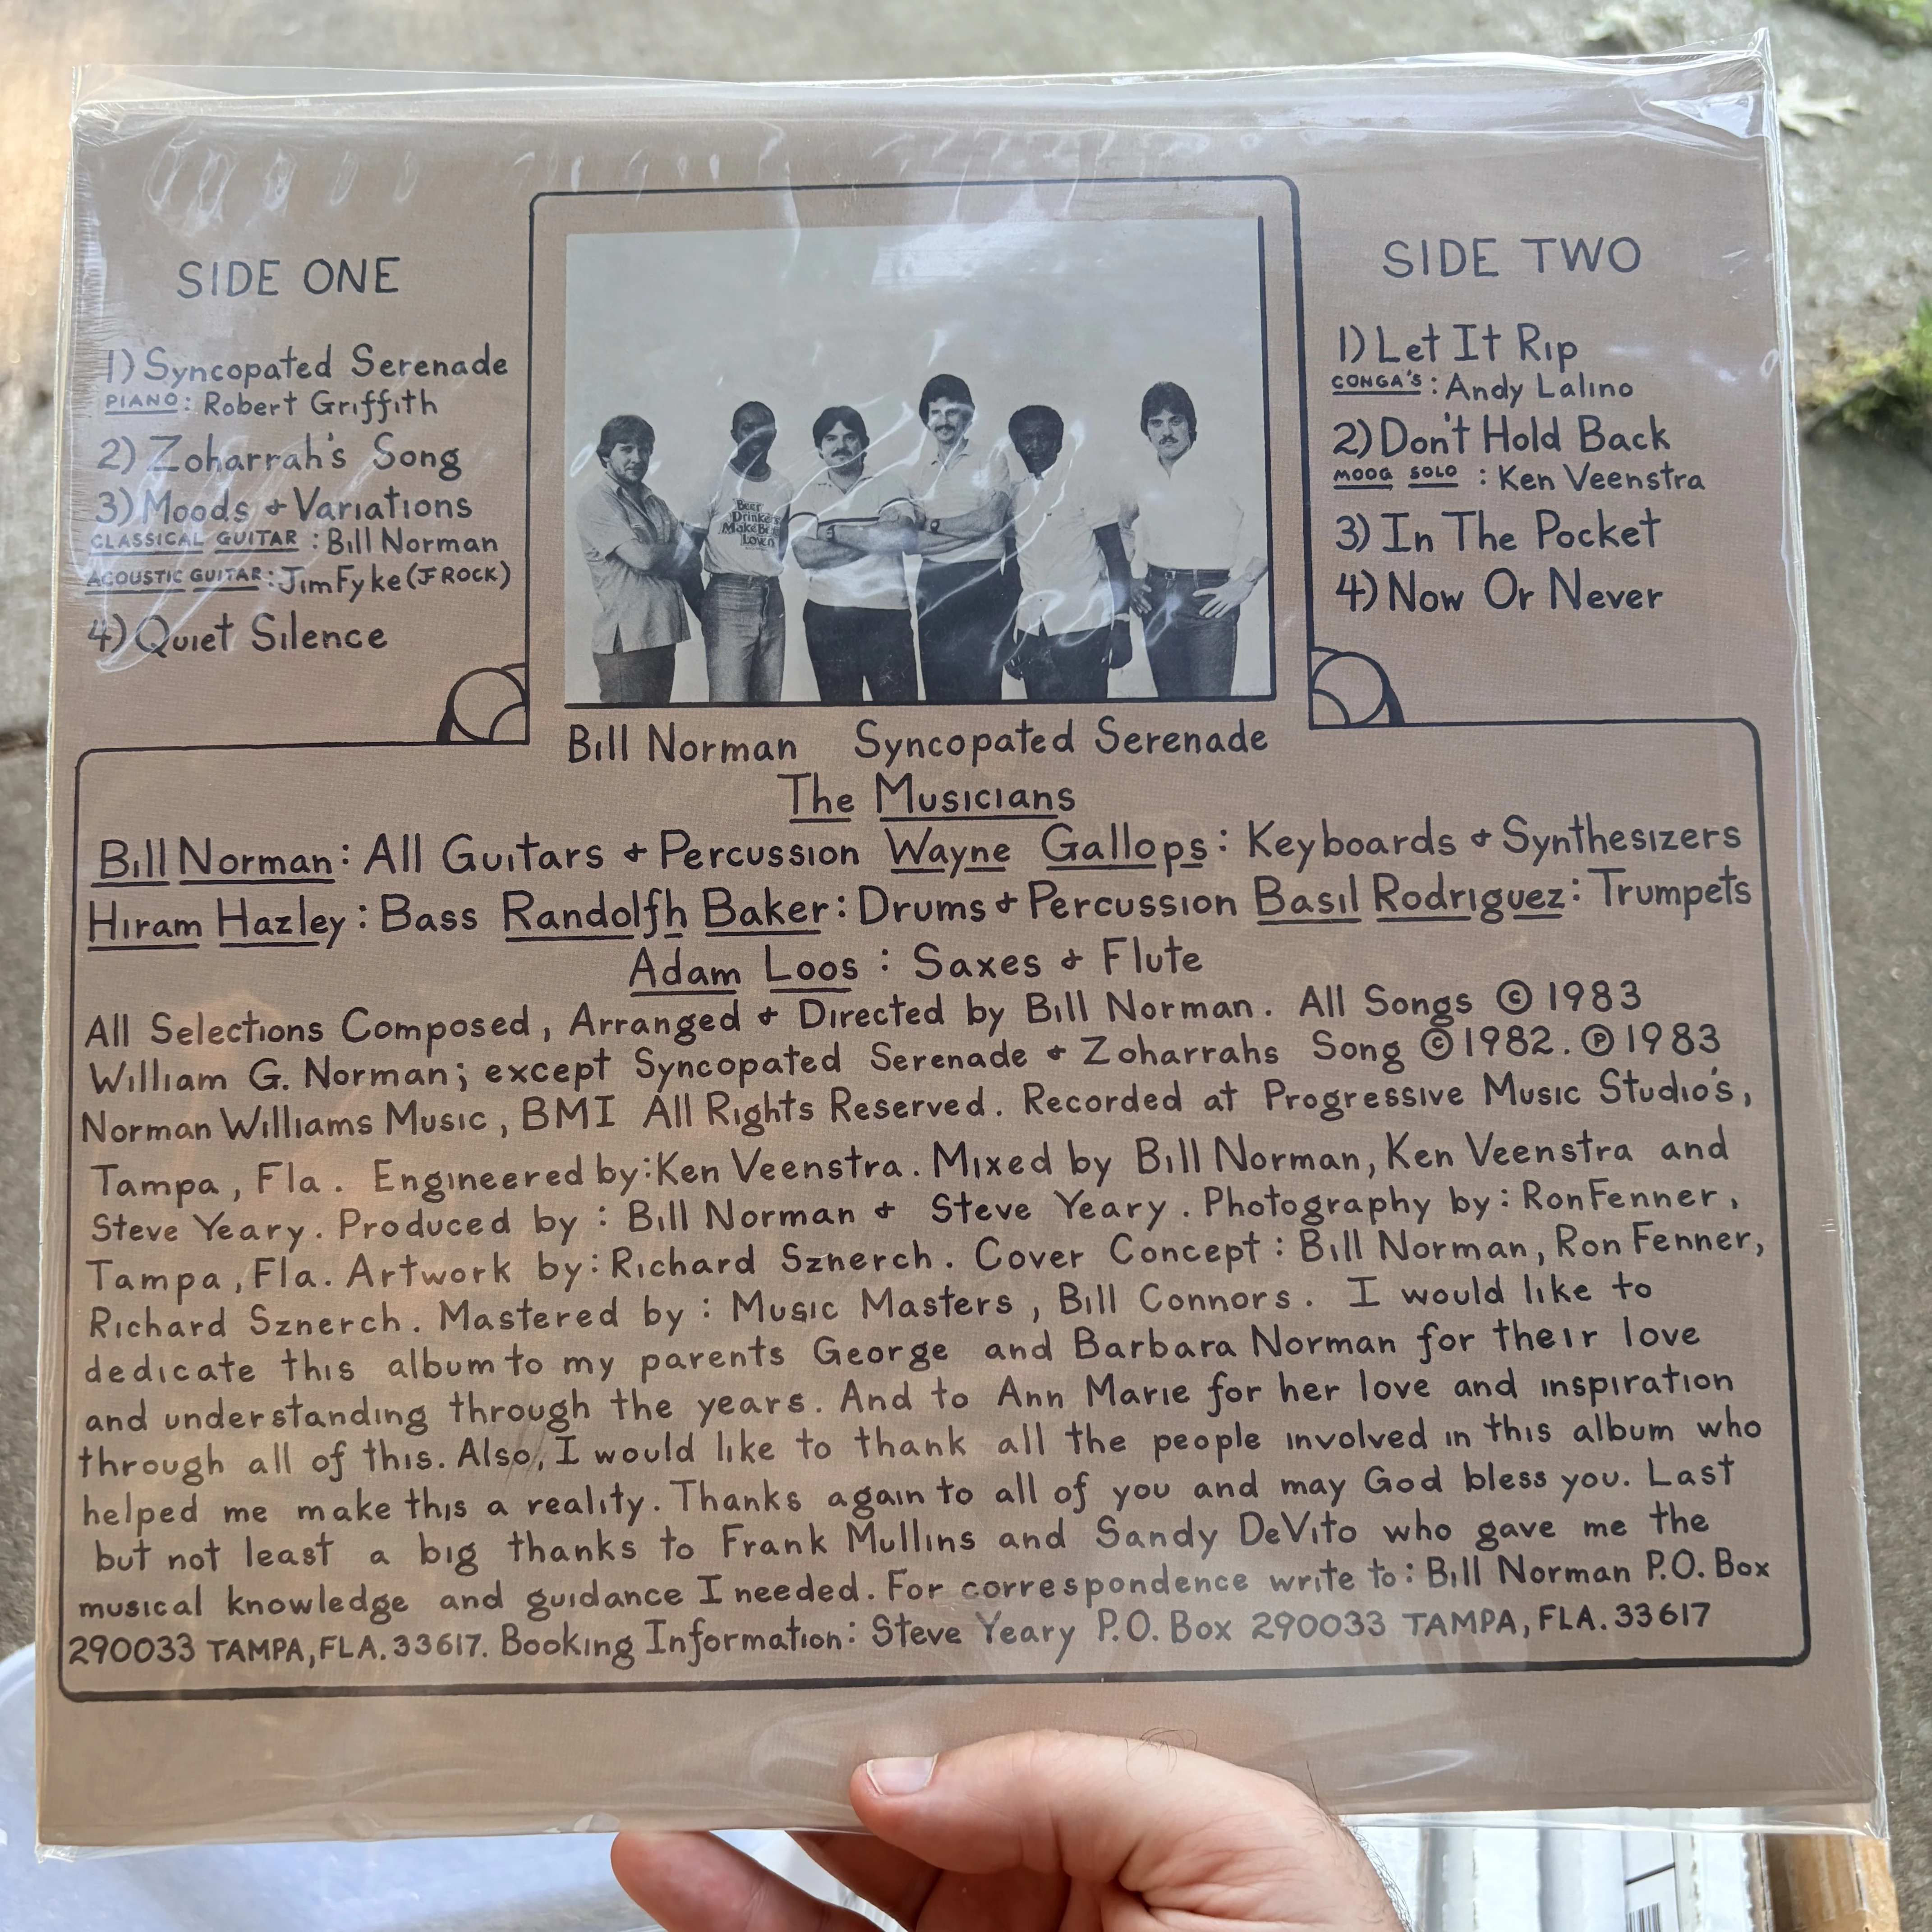 SIDE ONE
1) Syncopated Serenade
PIANO: Robert Griffith
2) Zoharrah's Song
3) Moods & Variations
CLASSICAL GUITAR: Bill Norman
ACOUSTIC GUITAR: Jim Fyke (J ROCK)
4) Quiet Silence
Beer
Drinkers
Make
SIDE TWO
1) Let It Rip
CONGA'S: Andy Lalino
2) Don't Hold Back
MOOG SOLO: Ken Veenstra
3) In The Pocket
4) Now Or Never
Bill Norman Syncopated Serenade
The Musicians
Bill Norman: All Guitars & Percussion Wayne Gallops: Keyboards & Synthesizers
Hiram Hazley: Bass Randolfh Baker: Drums & Percussion Basil Rodriguez: Trumpets
Adam Loos: Saxes & Flute
All Selections Composed, Arranged & Directed by Bill Norman. All Songs © 1983
William G. Norman; except Syncopated Serenade & Zoharrahs Song © 1982. ℗ 1983
Norman Williams Music, BMI All Rights Reserved. Recorded at Progressive Music Studio's,
Tampa, Fla. Engineered by: Ken Veenstra. Mixed by Bill Norman, Ken Veenstra and
Steve Yeary. Produced by: Bill Norman & Steve Yeary. Photography by: Ron Fenner,
Tampa, Fla. Artwork by: Richard Sznerch. Cover Concept: Bill Norman, Ron Fenner,
Richard Sznerch. Mastered by: Music Masters, Bill Connors. I would like to
dedicate this album to my parents George and Barbara Norman for their love
and understanding through the years. And to Ann Marie for her love and inspiration
through all of this. Also, I would like to thank all the people involved in this album who
helped me make this a reality. Thanks again to all of you and may God bless you. Last
but not least a big thanks to Frank Mullins and Sandy DeVito who gave me the
musical knowledge and guidance I needed. For correspondence write to: Bill Norman P.O. Box
290033 TAMPA, FLA. 33617. Booking Information: Steve Yeary P.O. Box 290033 TAMPA, FLA. 33617